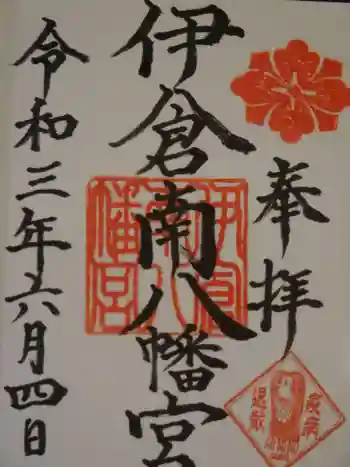 奉拝
伊倉南八幡宮
令和三年六月四日